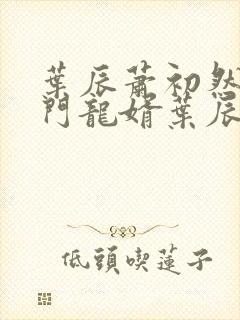 葉辰蕭初然
門龍婿葉辰
低頭喫蓮子